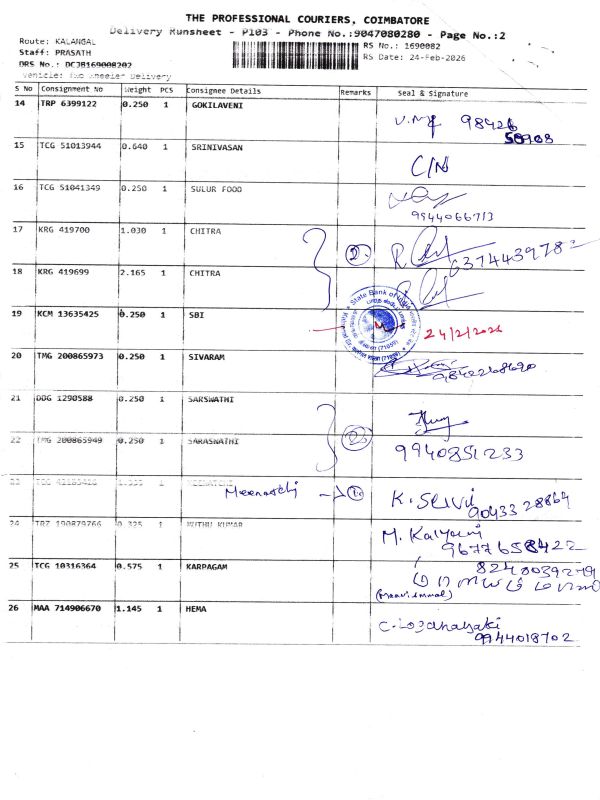 THE PROFESSIONAL COURIERS, COIMBATORE
Delivery Runsheet - P103 - Phone No.:9047080280 - Page No.:2
Route: KALANGAL
Staff: PRASATH
DRS No.: DCJB169008202
Vehicle: Two Wheeler Delivery
RS No.: 1690082
RS Date: 24-Feb-2026
S No Consignment No Weight PCS Consignee Details Remarks Seal & Signature
14 TRP 6399122 0.250 1 GOKILAVENI
98426
15 TCG 51013944 0.640 1 SRINIVASAN
C/N
16 TCG 51041349 0.250 1 SULUR FOOD
9944066713
17 KRG 419700 1.030 1 CHITRA
2
18 KRG 419699 2.165 1 CHITRA
19 KCM 13635425 0.250 1 SBI
State Bank of India
24/2/2026
20 TMG 200865973 0.250 1 SIVARAM
9842268690
21 DDG 1290588 0.250 1 SARSWATHI
22 TMG 200865949 0.250 1 SARASWATHI
2
9940851233
23 1
Meenatchi
K. Selvi
90433 28864
24 TRZ 190879766 0.325 1 MUTHU KUMAR
M. Kalyani
9677658422
25 TCG 10316364 0.575 1 KARPAGAM
8248039279
26 MAA 714906670 1.145 1 HEMA
C. Loganayaki
9944018702